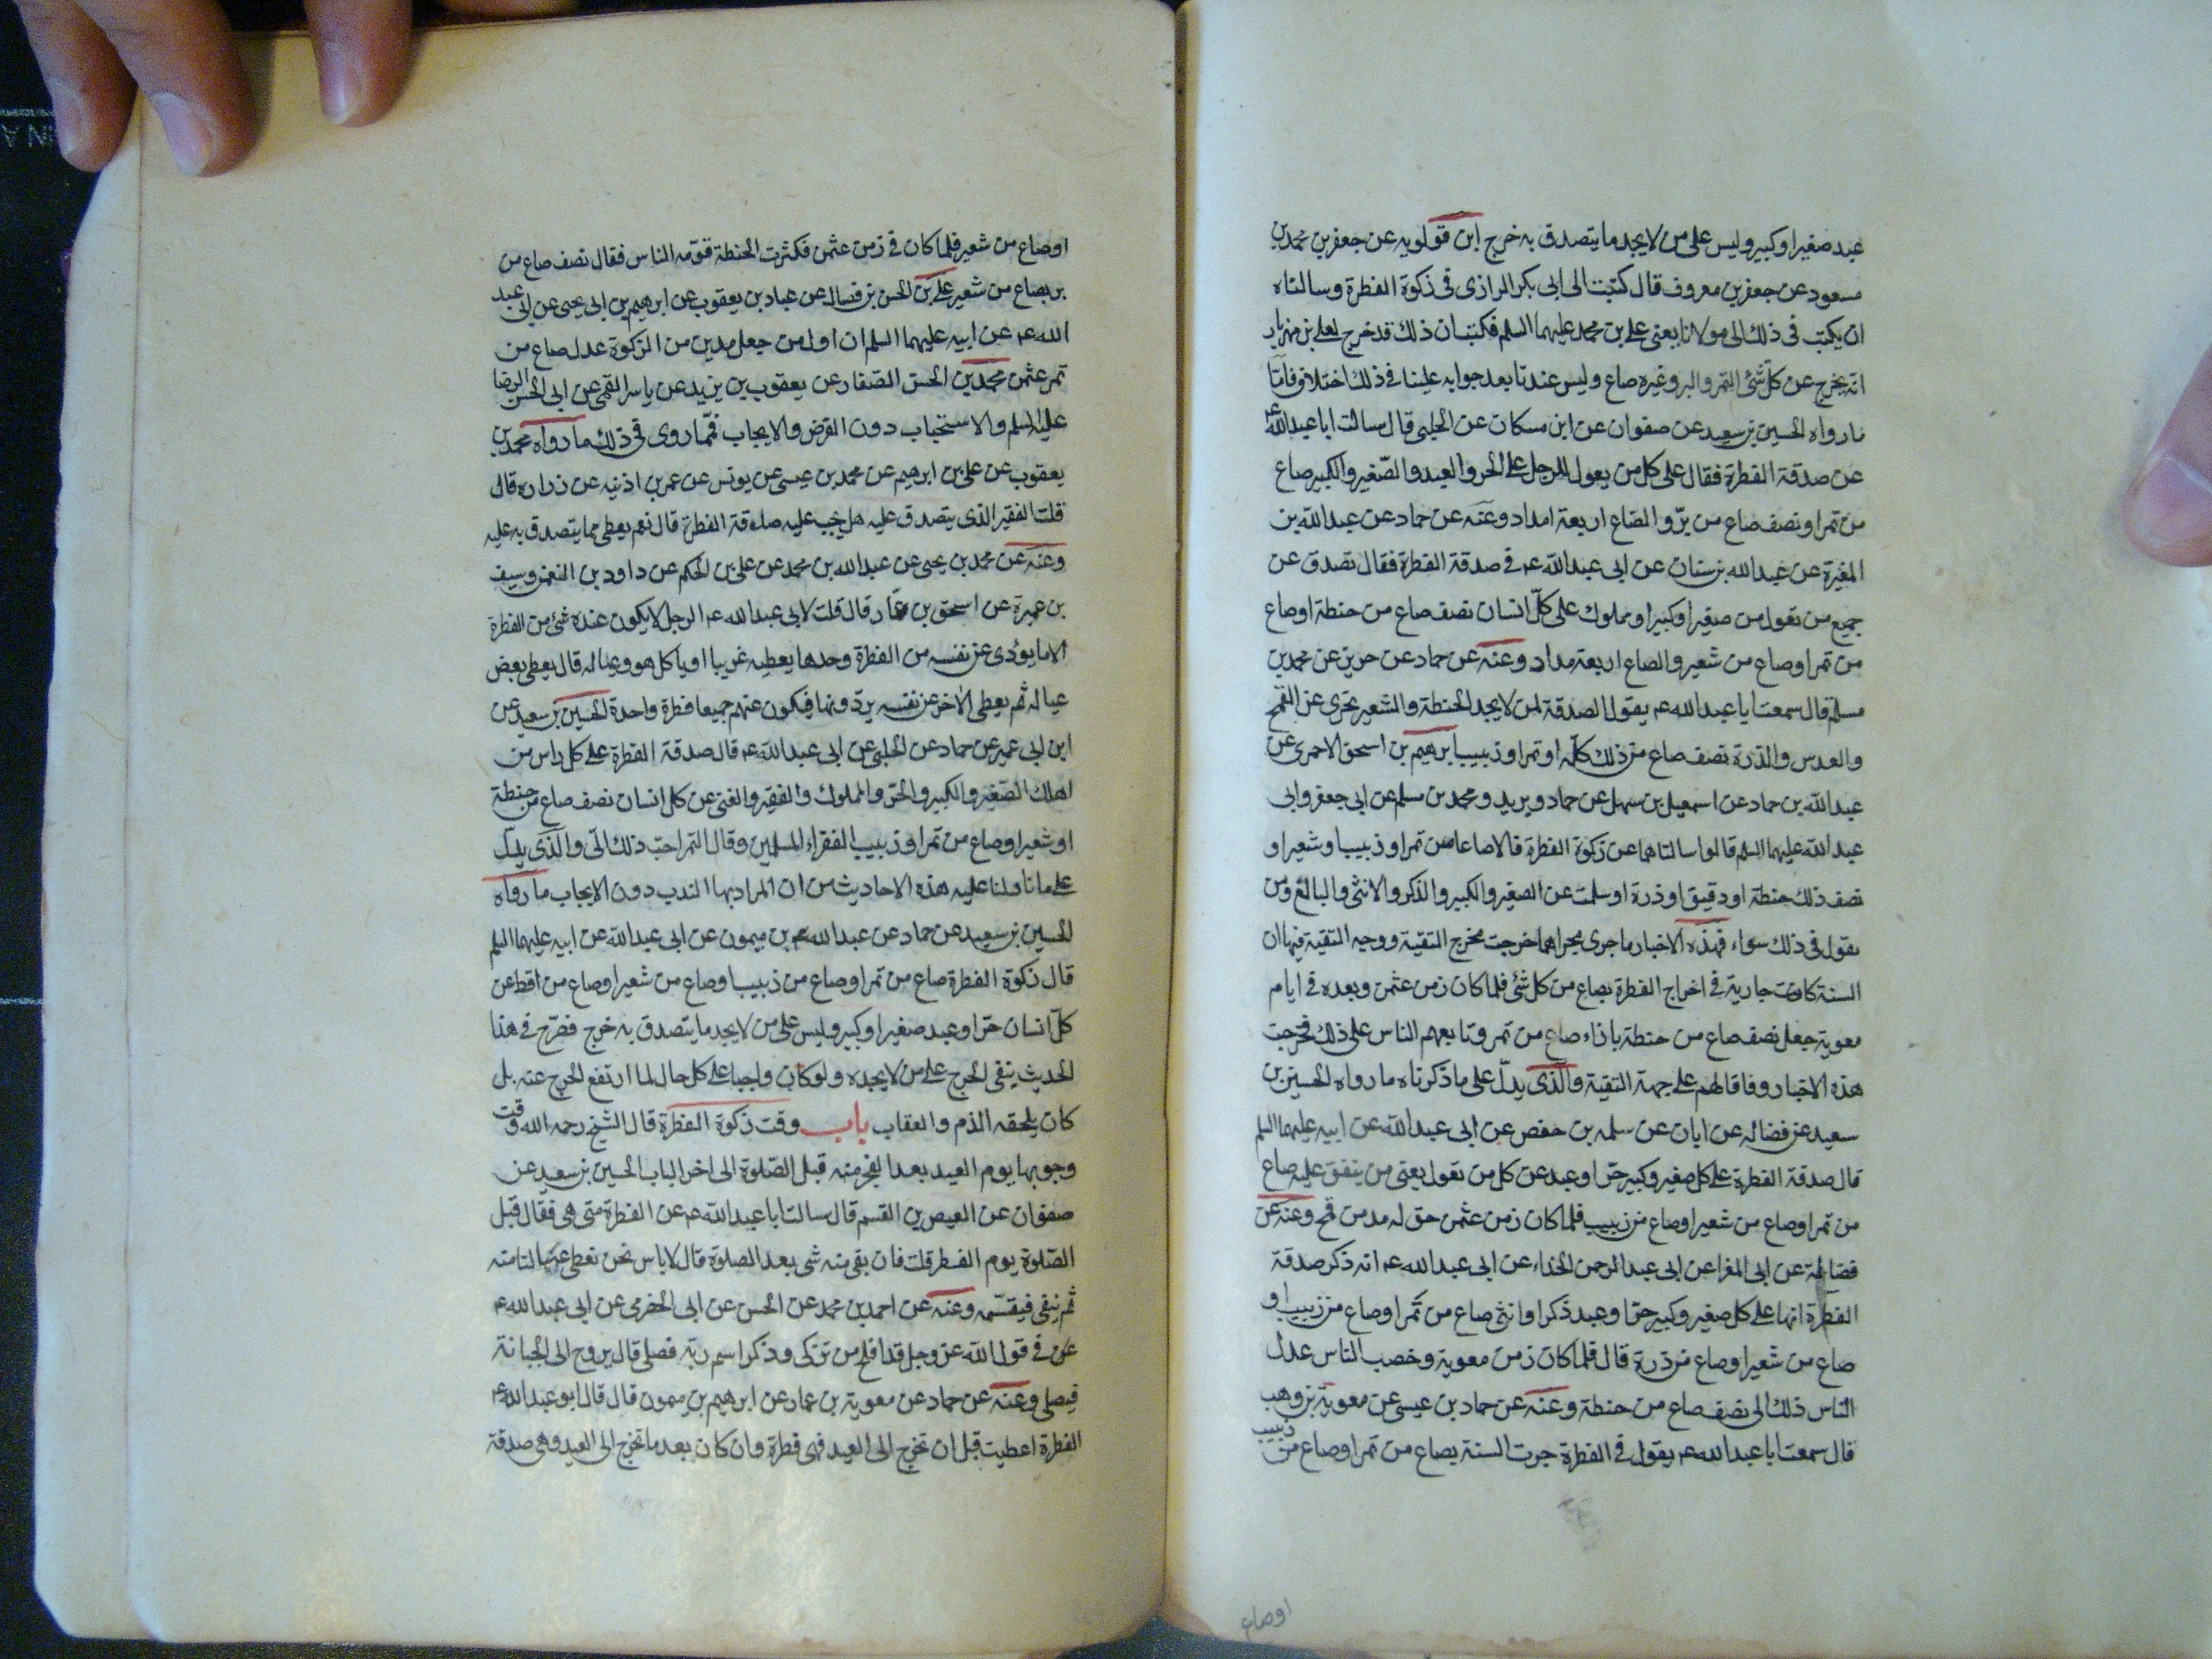 عبد صغير او كبير وليس على من لا يجد ما يتصدق به خرج ابن قولويه عن جعفر بن محمد بن
مسعود عن جعفر بن معروف قال كتبت الى ابى بكر الرازى فى زكوة الفطرة وسالناه
ان يكتب فى ذلك الى مولانا يعنى على بن محمد عليهما السلم فكتب ان ذلك قد خرج لعلى بن مهزيار
انه يخرج عن كل شئ التمر والبر وغيره صاع وليس عندنا بعد جوابه علينا فى ذلك اختلاف فاما
ما رواه الحسين بن سعيد عن صفوان عن ابن مسكان عن الحلبى قال سالت ابا عبد الله ع
عن صدقة الفطرة فقال على كل من يعول الرجل على الحر والعبد والصّغير والكبير صاع
من تمر او نصف صاع من برّ والصاع اربعة امداد وعنه عن حماد عن عبد الله بن
المغيرة عن عبد الله بن سنان عن ابى عبد الله ع فى صدقة الفطرة فقال تصدق عن
جميع من تعول من صغير او كبير او مملوك على كلّ انسان نصف صاع من حنطة او صاع
من تمر او صاع من شعير والصاع اربعة مداد وعنه عن حماد عن حريز عن محمد بن
مسلم قال سمعت ابا عبد الله ع يقول الصدقة لمن لا يجد الحنطة والشعير يجزى عن القمح
والعدس والذرة نصف صاع من ذلك كلّه او تمر او زبيب ابرهيم بن اسحق الاحمرى عن
عبد الله بن حماد عن اسمعيل بن سهل عن حماد وبريد ومحمد بن مسلم عن ابى جعفر وابى
عبد الله عليهما السلم قالوا سالناهما عن زكوة الفطرة قالا صاعا من تمر او زبيب او شعير او
نصف ذلك حنطة او دقيق او ذرة او سلت عن الصغير والكبير والذكر والانثى والبالغ ومن
يقول فى ذلك سواء فهذه الاخبار ما جرى مجراهما خرجت مخرج التقية ووجه التقية فيها ان
السنة كانت جارية فى اخراج الفطرة بصاع من كل شئ فلما كان زمن عثمن وبعده فى ايام
معوية جعل نصف صاع من حنطة بازاء صاع من تمر وتابعهم الناس على ذلك فخرجت
هذه الاخبار وفاقا لهم على جهة التقية والّذى يدلّ على ما ذكرناه ما رواه الحسين بن
سعيد عن فضاله عن ابان عن سلمه بن حفص عن ابى عبد الله عن ابيه عليهما السلم
قال صدقة الفطرة على كل صغير وكبير حرّ او عبد عن كل من تعول يعنى من ينفق عليه صاع
من تمر او صاع من شعير او صاع من زبيب فلما كان زمن عثمن حق له مد من قمح وعنه عن
فضالة عن ابى المغرا عن ابى عبد الرحمن الحذاء عن ابى عبد الله ع انه ذكر صدقة
الفطرة انها على كل صغير وكبير حرّ او عبد ذكر او انثى صاع من تمر او صاع من زبيب او
صاع من شعير او صاع من ذرة قال فلما كان زمن معوية وخصب الناس عدل
الناس ذلك الى نصف صاع من حنطة وعنه عن حماد بن عيسى عن معوية بن وهب
قال سمعت ابا عبد الله ع يقول فى الفطرة جرت السنة بصاع من تمر او صاع من زبيب
او صاع
او صاع من شعير فلما كان فى زمن عثمن فكثرت الحنطة قوّمه الناس فقال نصف صاع من
بر بصاع من شعير على بن الحسن بن فضال عن عباد بن يعقوب عن ابرهيم بن ابى يحيى عن ابى عبد
الله ع عن ابيه عليهما السلم ان اول من جعل مدين من الزكوة عدل صاع من
تمر عثمن محمد بن الحسن الصفار عن يعقوب بن يزيد عن ياسر القمى عن ابى الحسن الرضا
عليه السلم والاستحباب دون الفرض والايجاب فمّا روى فى ذلك ما رواه محمد بن
يعقوب عن على بن ابرهيم عن محمد بن عيسى عن يونس عن عمر بن اذنيه عن زراره قال
قلت الفقير الذى يتصدق عليه هل يجب عليه صدقة الفطرة قال نعم يعطى مما يتصدق به عليه
وعنه عن محمد بن يحيى عن عبد الله بن محمد عن على بن الحكم عن داود بن النعمن وسيف
بن عميرة عن اسحق بن عمّار قال قلت لابى عبد الله ع الرجل لا يكون عنده شئ من الفطرة
الا ما يؤدى عن نفسه من الفطرة وحدها يعطيه غريبا او ياكل هو وعياله قال يعطى بعض
عياله ثم يعطى الاخر عن نفسه يردّونها فيكون عنهم جميعا فطرة واحدة الحسين بن سعيد عن
ابن ابى عمير عن حماد عن الحلبى عن ابى عبد الله ع قال صدقة الفطرة على كل راس من
اهلك الصّغير والكبير والحرّ والمملوك والفقير والغنى عن كل انسان نصف صاع من حنطة
او شعير او صاع من تمر او زبيب الفقراء المسلمين وقال التمر احبّ ذلك الىّ والّذى يدلّ
على ما تاولنا عليه هذه الاحاديث من ان المراد بها الندب دون الايجاب ما رواه
الحسين بن سعيد عن حماد عن عبد الله بن ميمون عن ابى عبد الله عن ابيه عليهما السلم
قال زكوة الفطرة صاع من تمر او صاع من زبيب او صاع من شعير او صاع من اقط عن
كلّ انسان حرّ او عبد صغير او كبير وليس على من لا يجد ما يتصدق به خرج فصرّح فى هذا
الحديث بنفى الحرج على من لا يجده ولو كان واجبا على كل حال لما ارتفع الحرج عنه بل
كان يلحقه الذم والعقاب باب وقت زكوة الفطرة قال الشيخ رحمه الله وقت
وجوبها يوم العيد بعد الفجر منه قبل الصّلوة الى اخر الباب الحسين بن سعيد عن
صفوان عن العيص بن القسم قال سالت ابا عبد الله ع عن الفطرة متى هى فقال قبل
الصّلوة يوم الفطر قلت فان بقى منه شى بعد الصلوة قال لا باس نحن نعطى عيالنا منه
ثم نبقى فيقسّمه وعنه عن احمد بن محمد عن الحسن عن ابى الحضرمى عن ابى عبد الله ع
عن فى قول الله عز وجل قد افلح من تزكى وذكر اسم ربّه فصلى قال يروح الى الجبانة
فيصلى وعنه عن حماد عن معوية بن عمار عن ابرهيم بن ميمون قال قال ابو عبد الله ع
الفطرة اعطيت قبل ان تخرج الى العيد فهى فطرة وان كان بعد ما تخرج الى العيد وهى صدقة